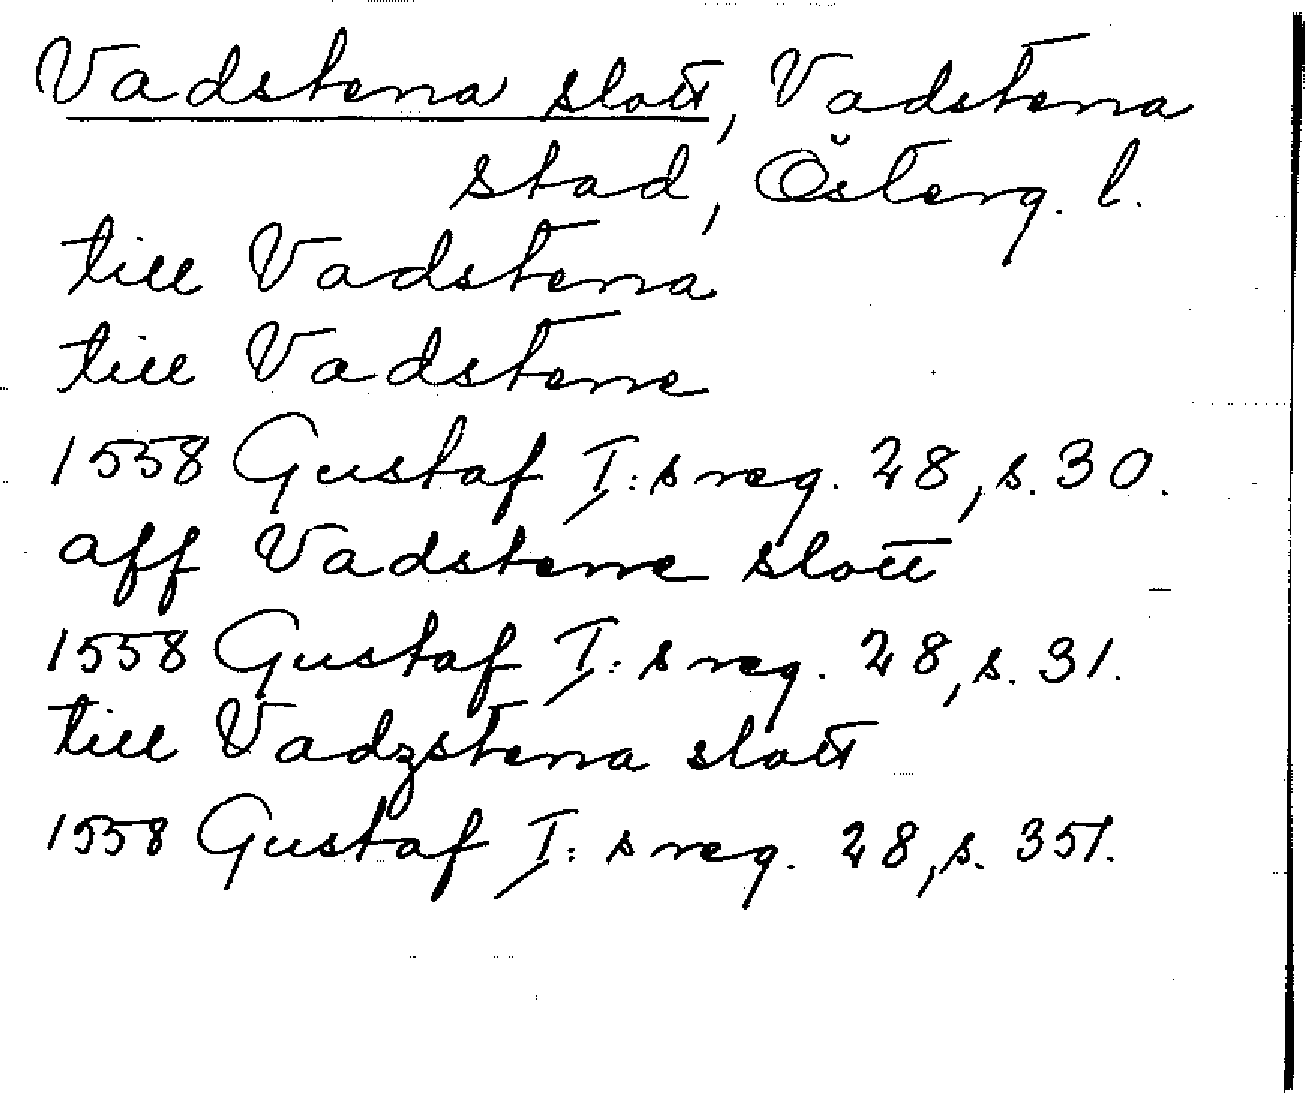 Vadstena slott, Vadstena
stad, Österg. l.
till Vadstena
till Vadstene
1558 Gustaf I:s reg. 28, s. 30.
aff Vadstene slott
1558 Gustaf I:s reg. 28, s. 31.
till Vadzstena slott
1558 Gustaf I:s reg. 28, s. 351.